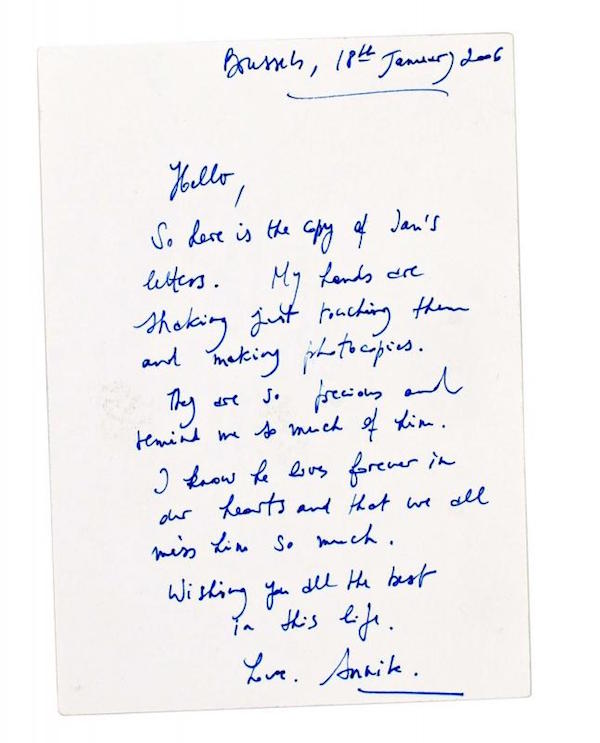 Brussels, 18th January 2006
Hello,
So here is the copy of Ian's
letters. My hands are
shaking just touching them
and making photocopies.
They are so precious and
remind me so much of him.
I know he lives forever in
our hearts and that we all
miss him so much.
Wishing you all the best
in this life.
Love. Annik.